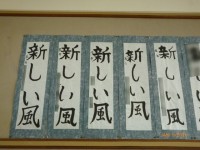 新しい風
新しい風
新しい風
新しい風
新しい風